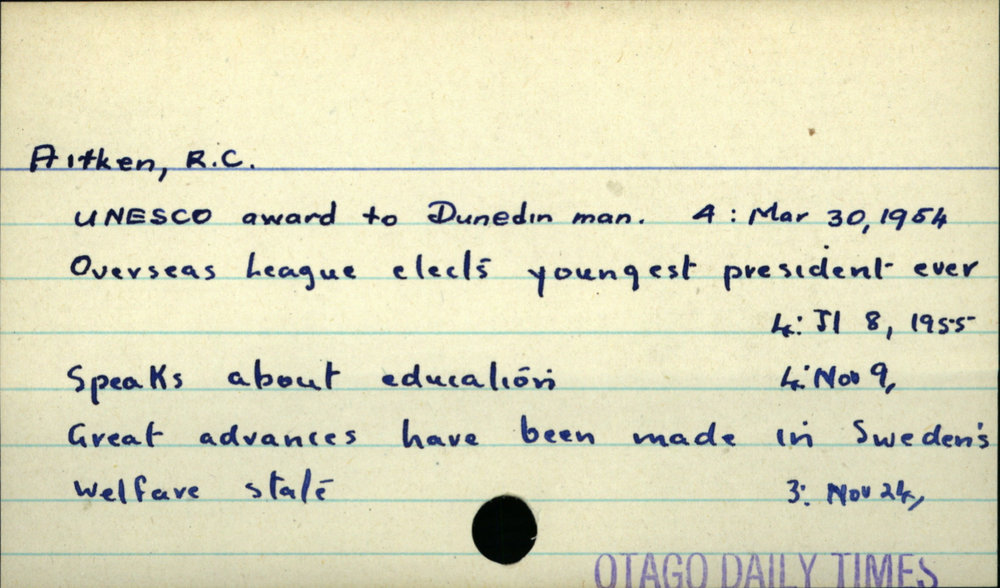 Aitken, R.C.
UNESCO award to Dunedin man. 4 : Mar 30, 1954
Overseas League elects youngest president ever
4: Jl 8, 1955
Speaks about education 4: Nov 9,
Great advances have been made in Sweden's
Welfare state 3: Nov 24,
OTAGO DAILY TIMES